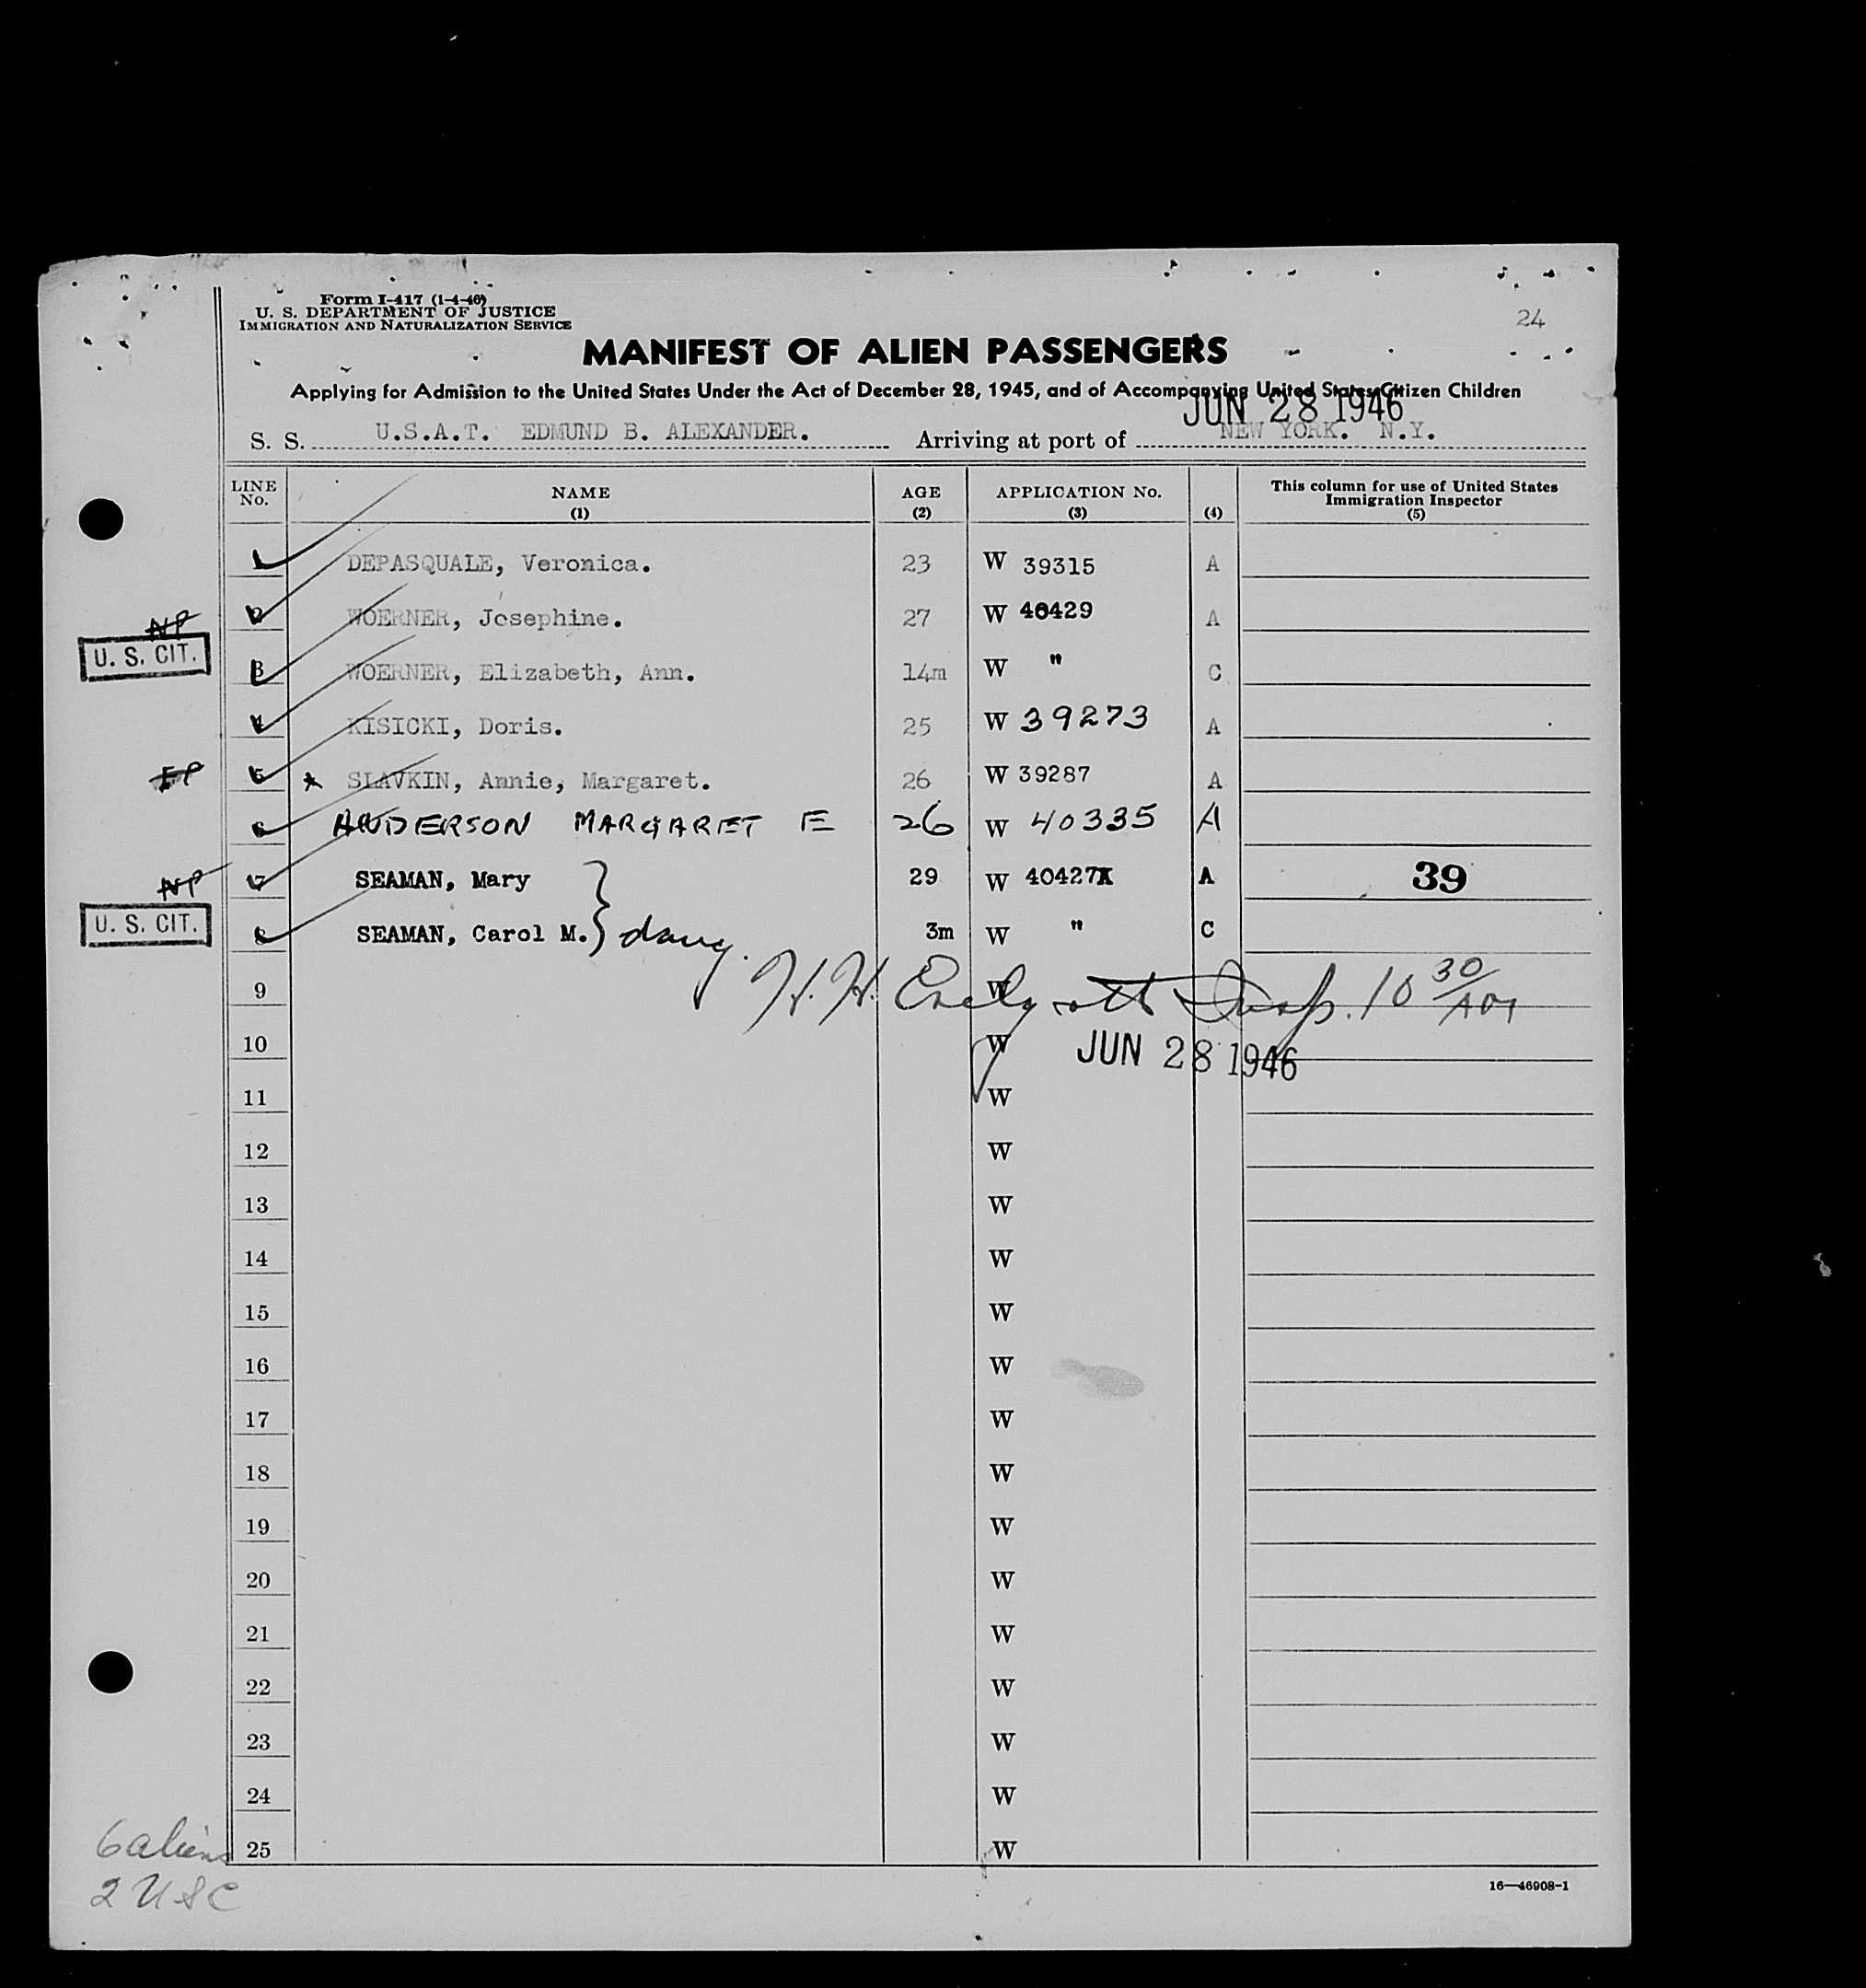 Form I-417 (1-4-46)
U. S. DEPARTMENT OF JUSTICE
IMMIGRATION AND NATURALIZATION SERVICE
24
MANIFEST OF ALIEN PASSENGERS
Applying for Admission to the United States Under the Act of December 28, 1945, and of Accompanying United States Citizen Children
JUN 28 1946
S. S. U.S.A.T. EDMUND B. ALEXANDER. Arriving at port of NEW YORK. N.Y.
LINE No. NAME (1) AGE (2) APPLICATION No. (3) (4) This column for use of United States Immigration Inspector (5)
1 DEPASQUALE, Veronica. 23 W 39315 A
2 WOERNER, Josephine. 27 W 40429 A
NP
U. S. CIT. 3 WOERNER, Elizabeth, Ann. 14m W " C
4 KISICKI, Doris. 25 W 39273 A
5 SLAVKIN, Annie, Margaret. 26 W 39287 A
6 ANDERSON MARGARET E 26 W 40335 A
NP 7 SEAMAN, Mary 29 W 40427X A 39
U. S. CIT. 8 SEAMAN, Carol M. } daug. 3m W " C
9 W H. H. Insp. 10 30/AM
10 W JUN 28 1946
11 W
12 W
13 W
14 W
15 W
16 W
17 W
18 W
19 W
20 W
21 W
22 W
23 W
24 W
25 W
6 aliens
2 USC
16—46908-1